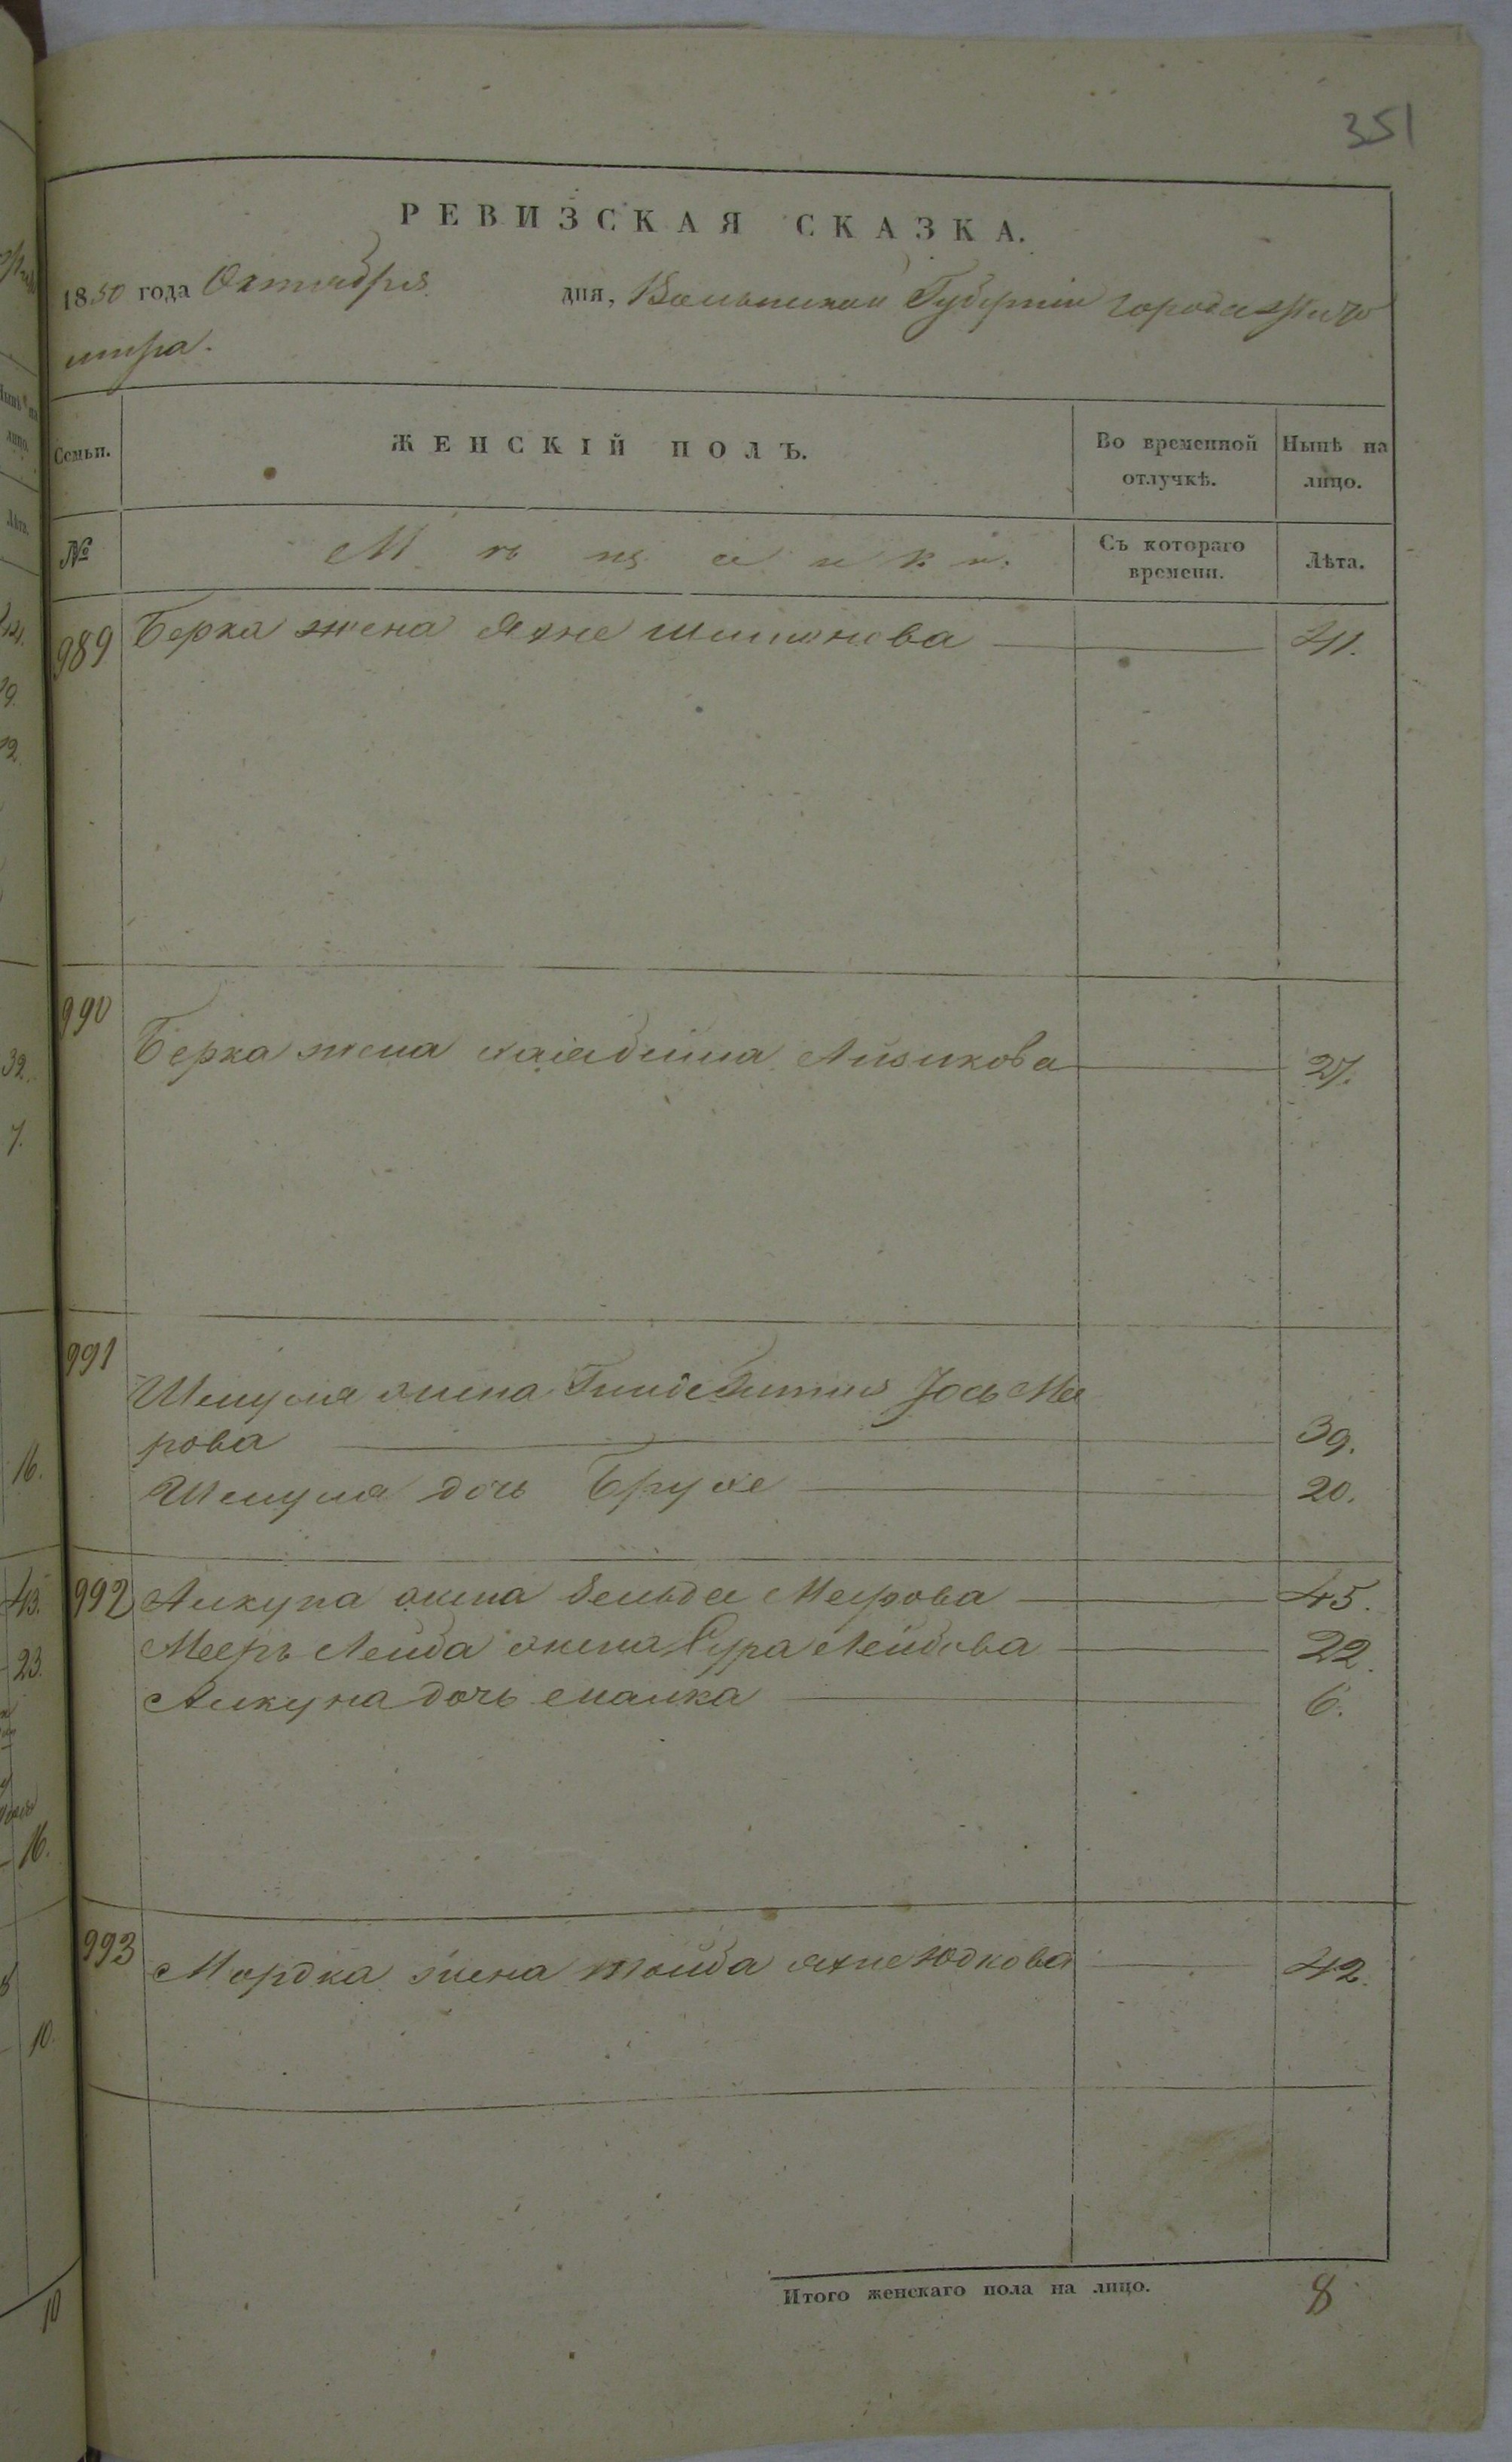 351
РЕВИЗСКАЯ СКАЗКА.
1850 года Октября дня, Волынской Губерніи города Жито
мира.
Семьи. ЖЕНСКІЙ ПОЛЪ. Во временной отлучкѣ. Нынѣ на лицо.
№ Мѣщанки. Съ котораго времени. Лѣта.
989 Берка жена Яхне Шимонова 41.
990
Берка жена Айзикова 27.
991
Шмуля жена Гинде Гитля Jось Мее
рова 39.
Шмуля дочь Брухе 20.
992 Янкула жена Зельда Меерова 45.
Меерь Лейба жена Сура Лейбова 22.
дочь Малка 6.
993
Мордка жена Тойба Яхне Юдкова 42.
Итого женскаго пола на лицо. 8